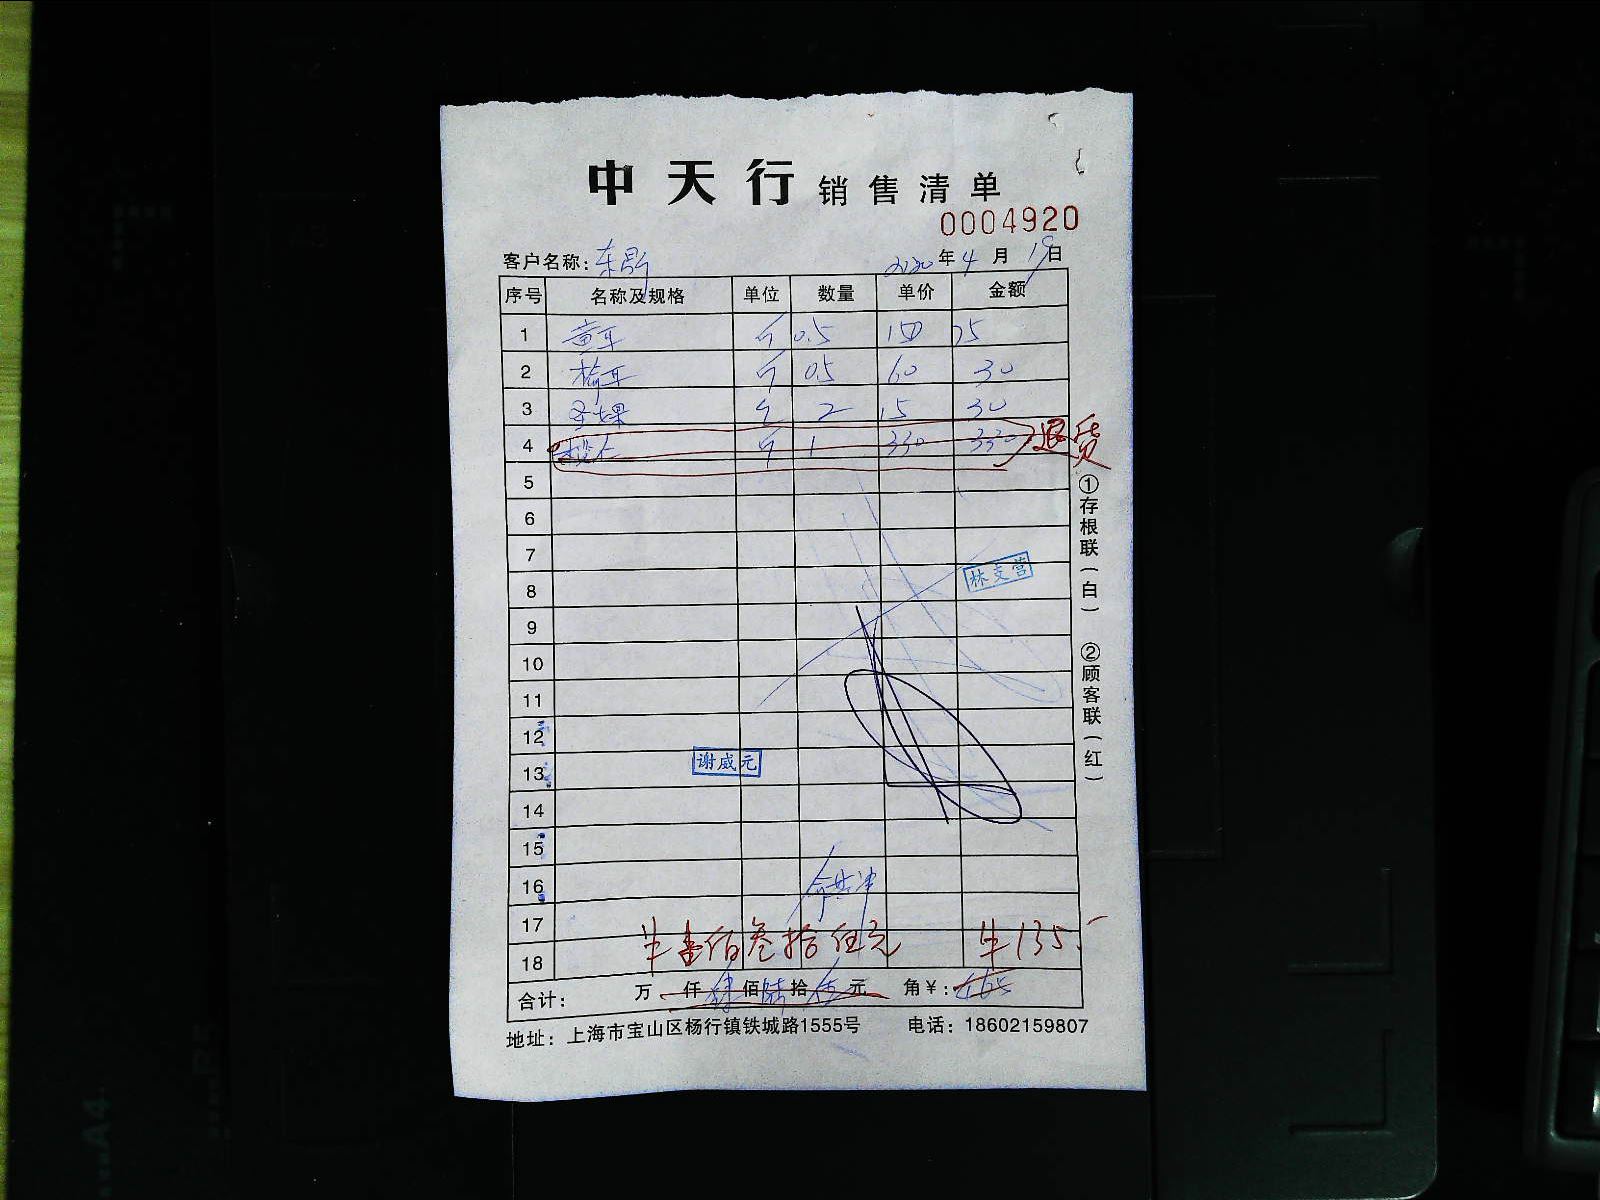 中天行 销售清单
0004920
客户名称: 2020年4月19日
序号 名称及规格 单位 数量 单价 金额
1 黄耳 斤 0.5 150 75
2 榆耳 斤 0.5 60 30
3 圣女果 2 15 30
4 斤 1 330 330 退货
5
6
7
8
林支营
9
10
11
12
13 谢威元
14
15
16
17
18 壹佰叁拾伍元 135.
合计: 万 仟 肆佰陆拾伍元 角¥: 465
地址: 上海市宝山区杨行镇铁城路1555号 电话: 18602159807
①存根联(白) ②顾客联(红)